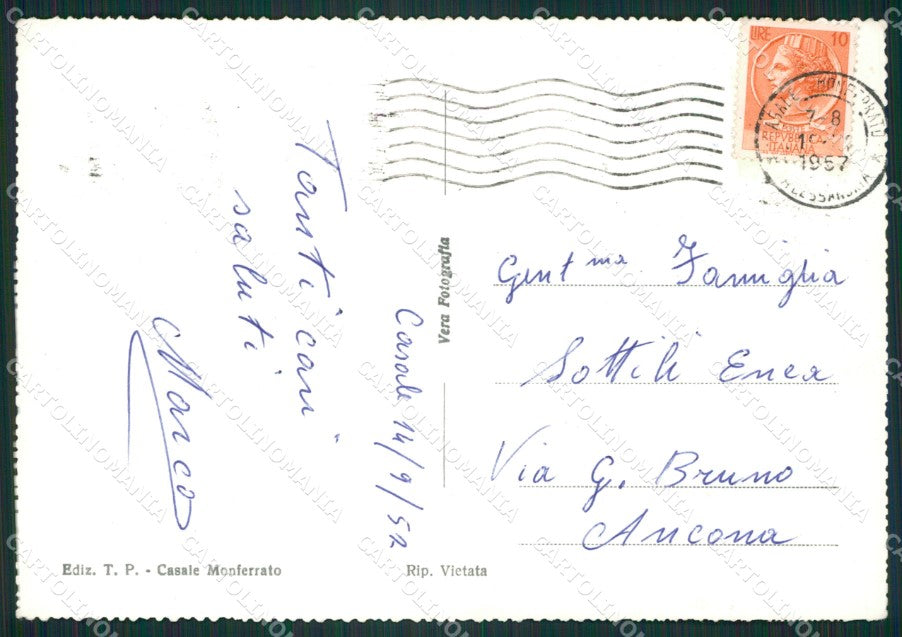 LIRE 10
REPVBBLICA
ITALIANA
CASALE MONFERRATO
7-8
1957
ALESSANDRIA
Tanti cari
saluti
Marco
Casale 14/9/57
Vera Fotografia
Gent ma Famiglia
Sottili Enea
Via G. Bruno
Ancona
Ediz. T. P. - Casale Monferrato
Rip. Vietata
CARTOLINOMANIA